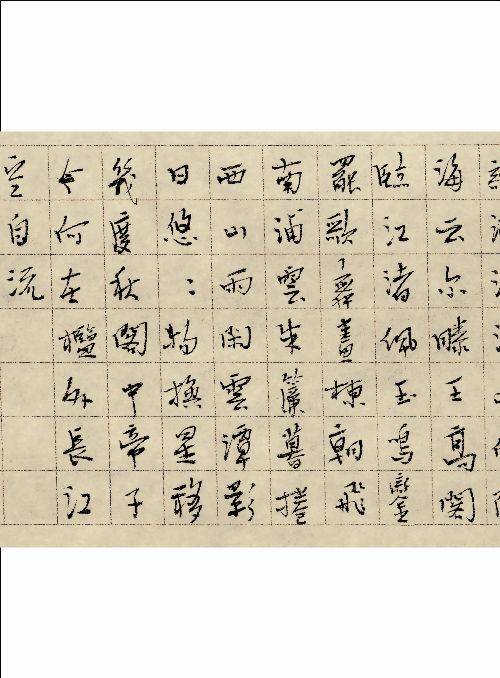 海云尔滕王高阁
臨江渚佩玉鳴鑾
罷歌舞畫棟朝飛
南浦雲朱簾暮捲
西山雨闲雲潭影
日悠：物換星移
幾度秋閣中帝子
今何在檻外長江
空自流